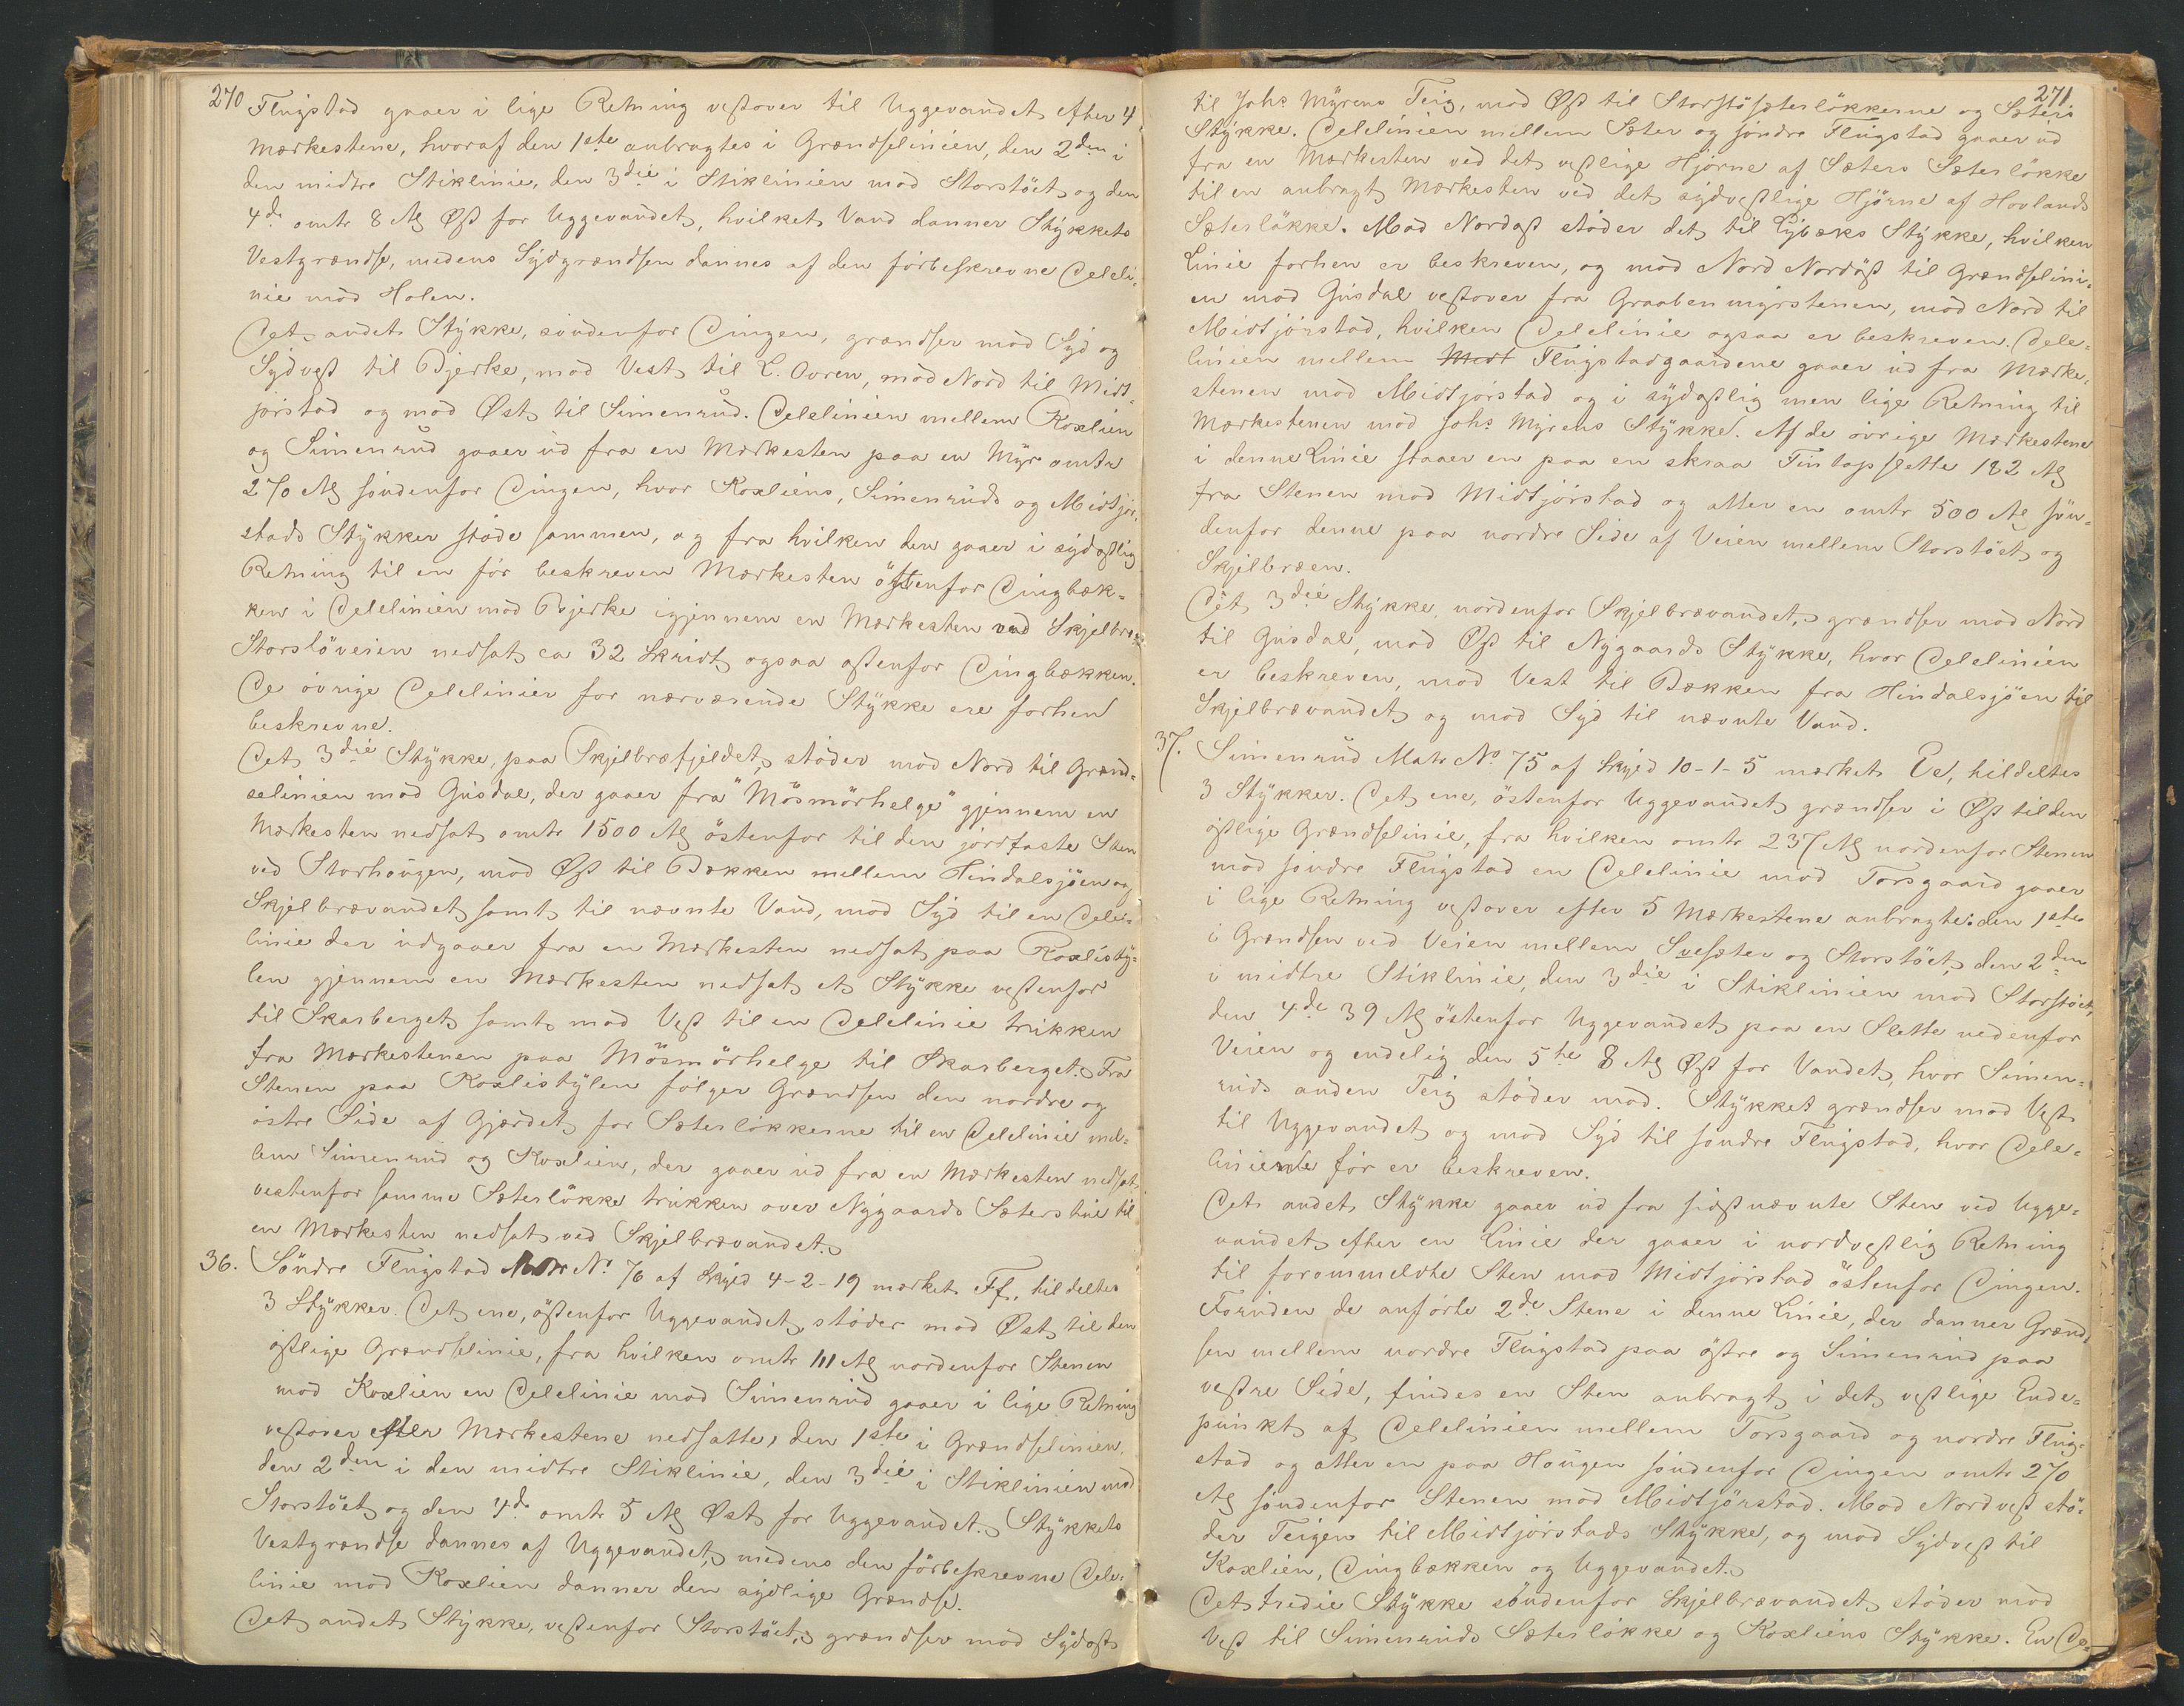 270
Flugstad gaaer i lige Retning vestover til Uggevandet efter 4
Mærkestene, hvoraf den 1ste anbragtes i Grændselinien, den 2den i
den midtre Stiklinie, den 3die i Stiklinien mod Storstöet og den
4de omtr 8 Al Øst for Uggevandet, hvilket Vand danner Stykkets
Vestgrændse, medens Sydgrændsen dannes af den förbeskrevne Deleli-
nie mod Holen.
Det andet Stykke, söndenfor Dingen, grændser mod Syd og
Sydvest til Bjerke, mod Vest til L. Ovren, mod Nord til Midt-
jörstad og mod Øst til Simenrud. Delelinien mellem Koxlien
og Simenrud gaaer ud fra en Mærkesten paa en Myr omtr
270 Al söndenfor Dingen, hvor Koxliens, Simenruds og Midtjör-
stads Stykker støde sammen, og fra hvilken den gaaer i sydøstlig
Retning til en för beskreven Mærkesten östenfor Dingbæk-
ken i Delelinien mod Bjerke igjennem en Mærkesten ved Skjelbræ-
Storstöveien nedsat ca 32 Skridt ogsaa østenfor Dingbækken.
De övrige Delelinier for nærværende Stykke ere forhen
beskrevne.
Det 3die Stykke, paa Skjelbræfjeldet, støder mod Nord til Grænd-
selinien mod Gusdal, der gaaer fra "Mösmörhelge" gjennem en
Mærkesten nedsat omtr 1500 Al östenfor til den jordfaste Sten
ved Storhöugen, mod Øst til Bækken mellem Hindalsjöen og
Skjelbrævandet samt til nævnte Vand, mod Syd til en Dele-
linie der udgaaer fra en Mærkesten nedsat paa Koxlisty-
len gjennem en Mærkesten nedsat et Stykke vestenfor
til Skarberget samt mod Vest til en Delelinie trukken
fra Mærkestenen paa Mösmörhelge til Skarberget. Fra
Stenen paa Koxlistylen fölger Grændsen den nordre og
östre Side af Gjærdet for Sæterlökkerne til en Delelinie mel-
lem Simenrud og Koxlien, der gaaer ud fra en Mærkesten nedsat
vestenfor samme Sæterlökke trukken over Nygaards Sæterstue til
en Mærkesten nedsat ved Skjelbrævandet.
36. Söndre Flugstad Matr No 76 af Skyld 4-2-19 mærket Ff. tildeltes
3 Stykker. Det ene, østenfor Uggevandet, støder mod Øst til den
østlige Grændselinie, fra hvilken omtr 111 Al nordenfor Stenen
mod Koxlien en Delelinie mod Simenrud gaaer i lige Retning
vestover efter Mærkestene nedsatte, den 1ste i Grændselinien,
den 2den i den midtre Stiklinie, den 3die i Stiklinien mod
Storstöet og den 4de omtr 5 Al Øst for Uggevandet. Stykkets
Vestgrændse dannes af Uggevandet, medens den förbeskrevne Dele-
linie mod Koxlien danner den sydlige Grændse.
Det andet Stykke, vestenfor Storstöet, grændser mod Sydøst
271
til Johs Myrens Teig, mod Øst til Storstösæterlökkerne og Sæters
Stykke. Delelinien mellem Sæter og söndre Flugstad gaaer ud
fra en Mærkesten ved det vestlige Hjörne af Sæters Sæterlökke
til en anbragt Mærkesten ved det sydvestlige Hjörne af Hovlands
Sæterlökke. Mod Nordøst støder det til Lybæks Stykke, hvilken
Linie forhen er beskreven, og mod Nord Nordöst til Grændselini-
en mod Gusdal vestover fra Graabenmyrstenen, mod Nord til
Midtjörstad, hvilken Delelinie ogsaa er beskreven. Dele-
linien mellem Midt Flugstadgaardene gaaer ud fra Mærke-
stenen mod Midtjörstad og i sydøstlig men lige Retning til
Mærkestenen mod Johs Myrens Stykke. Af de övrige Mærkestene
i denne Linie staaer en paa en skraa Fintopslette 182 Al
fra Stenen mod Midtjörstad og atter en omtr 500 Al sön-
denfor denne paa nordre Side af Veien mellem Storstöet og
Skjelbræen.
Det 3die Stykke, nordenfor Skjelbrævandet, grændser mod Nord
til Gusdal, mod Øst til Nygaards Stykke, hvor Delelinien
er beskreven, mod Vest til Bækken fra Hindalsjöen til
Skjelbrævandet og mod Syd til nævnte Vand.
37. Simenrud Matr No 75 af Skyld 10-1-5 mærket Ee, tildeltes
3 Stykker. Det ene, östenfor Uggevandet grændser i Øst til den
østlige Grændselinie, fra hvilken omtr 237 Al nordenfor Stenen
mod söndre Flugstad en Delelinie mod Torsgaard gaaer
i lige Retning vestover efter 5 Mærkestene anbragte: den 1ste
i Grændsen ved Veien mellem Svesæter og Storstöet, den 2den
i midtre Stiklinie, den 3die i Stiklinien mod Storstöet,
den 4de 39 Al östenfor Uggevandet paa en Slette nedenfor
Veien og endelig den 5te 8 Al Øst for Vandet, hvor Simen-
ruds anden Teig støder mod. Stykket grændser mod Vest
til Uggevandet og mod Syd til söndre Flugstad, hvor Dele-
linien för er beskreven.
Det andet Stykke gaaer ud fra sidstnævnte Sten ved Ugge-
vandet efter en Linie der gaaer i nordvestlig Retning
til forommeldte Sten mod Midtjörstad östenfor Dingen.
Foruden de anförte 2de Stene i denne Linie, der danner Grænd-
sen mellem nordre Flugstad paa östre og Simenrud paa
vestre Side, findes en Sten anbragt i det vestlige Ende-
punkt af Delelinien mellem Torsgaard og nordre Flug-
stad og atter en paa Höugen söndenfor Dingen omtr 270
Al söndenfor Stenen mod Midtjörstad. Mod Nordvest stö-
der Teigen til Midtjörstads Stykke, og mod Sydvest til
Koxlien, Dingbækken og Uggevandet.
Det tredie Stykke söndenfor Skjelbrævandet støder mod
Vest til Simenruds Sæterlökke og Koxliens Stykke. En De-